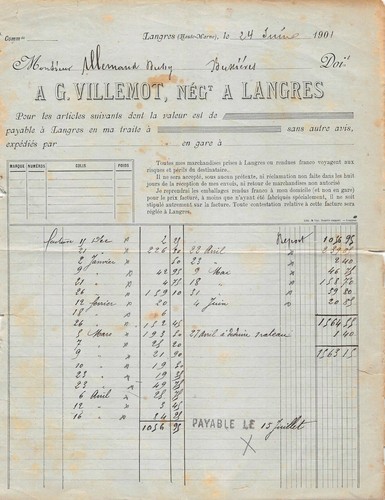 Comm
Langres (Haute-Marne), le 24 Juin 1901
Monsieur Allemand Bussières Doit
A G. VILLEMOT, NÉGT A LANGRES
Pour les articles suivants dont la valeur est de
payable à Langres en ma traite à sans autre avis,
expédiés par en gare à
MARQUE NUMÉROS COLIS POIDS
Toutes mes marchandises prises à Langres ou rendues franco voyagent aux
risques et périls du destinataire.
Il ne sera accepté, sous aucun prétexte, ni réclamation non faite dans les huit
jours de la réception de mes envois, ni retour de marchandises non autorisé
Je reprendrai les emballages rendus franco à mon domicile (et non en gare) pour
le prix facturé, à moins qu'ayant été fabriqués spécialement, il ne soit
stipulé autrement sur la facture. Toute contestation relative à cette facture sera
réglée à Langres.
facture 11 Xbre 2 25 Report 1056 95
21 226 80 22 Avril
2 Janvier 50 23 2 40
9 42 95 9 Mai 46 75
21 4 25 18 158 70
26 159 10 31 39 80
12 février 20 4 Juin 20 85
18 6
26 152 45 1564 55
5 Mars 193 50 27 Avril rateau 1 40
7 28 20 1563 15
9 21 90
10 19 50
23 13 50
23 49 75
6 Avril 28
12 3 45
16 24 95
1056 95 PAYABLE LE 15 Juillet